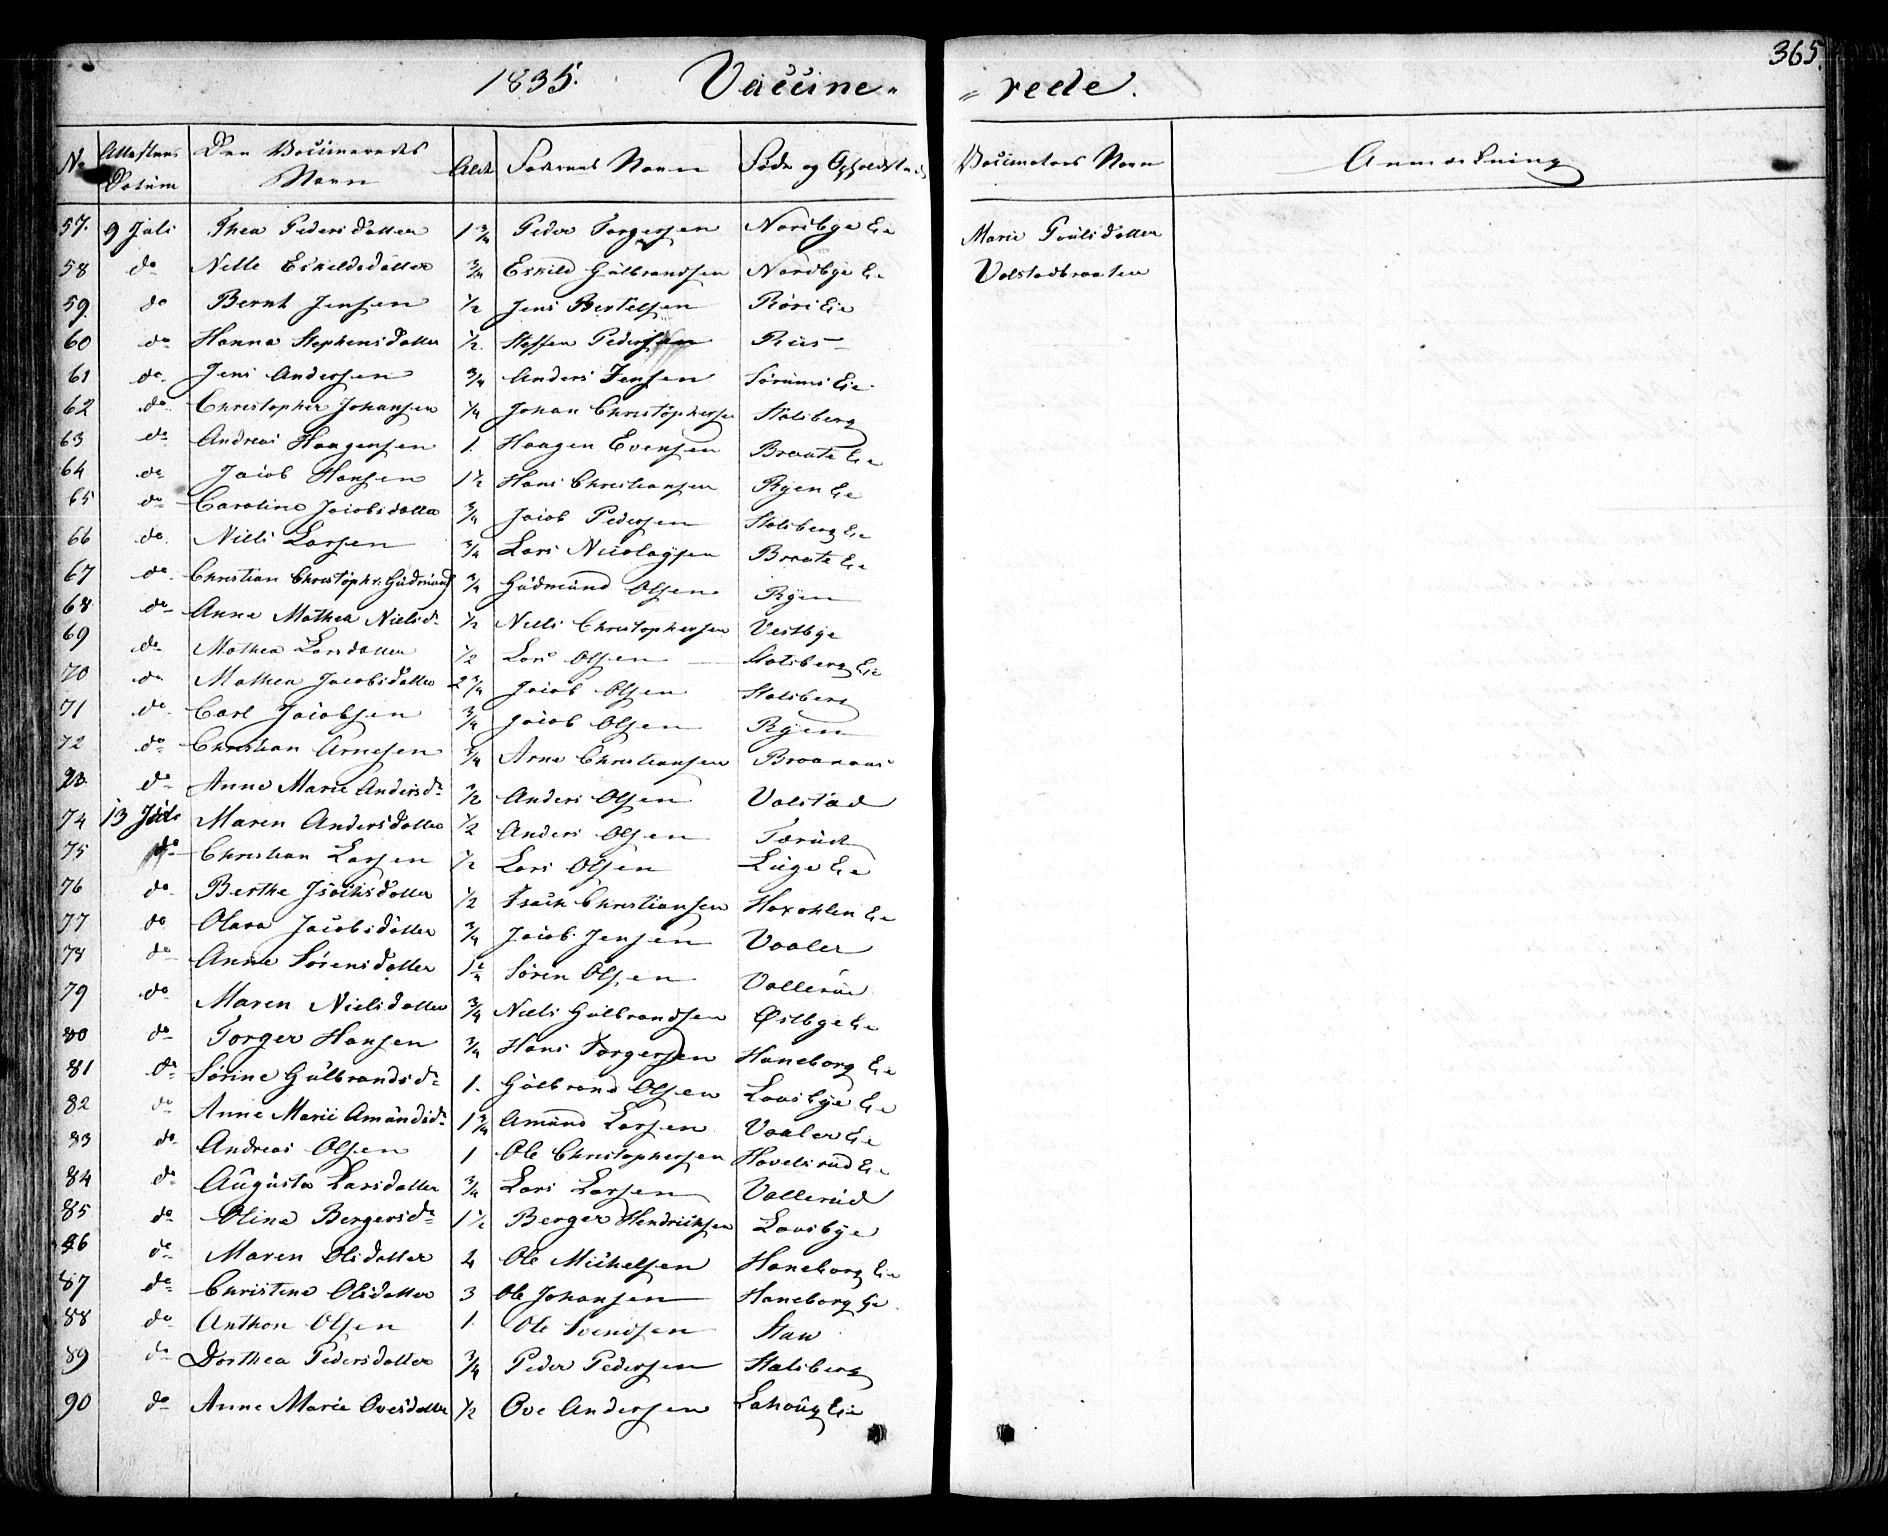 365.
1835. Vaccine- =rede.
No Attestens Datum Den Vaccineredes Navn Alder Faderens Navn Føde og Opholdsted Vaccinateurs Navn Anmærkning
57. 9 Juli Thea Pedersdatter 1 3/4 Peder Torgersen Nordbye Eie Marie Poulsdatter
58 do Nelle Eskildsdatter 3/4 Eskild Gulbrandsen Nordbye Eie Volstadbraaten
59. do Bernt Jensen 1/2 Jens Bertelsen Eie
60 do Hanna Stephensdatter 1/2. Steffen Pedersen
61 do Jens Andersen 3/4 Anders Jensen Sørums Eie
62 do Christopher Johansen 1/4 Johan Christophersen Stalsberg
63 do Andreas Haagensen 1. Haagen Evensen Braate Eie
64 do Jacob Hansen 1 1/2 Hans Christiansen Ryen Eie
65 do Caroline Jacobsdatter 3/4 Jacob Pedersen Stalsberg Eie
66 do Niels Larsen 3/4 Lars Nicolaysen Braate Eie
67 do Christian Christophr. Gudmunds 3/4 Gudmund Olsen Ryen
68 do Anne Mathea Nielsdr 1/2 Niels Christophersen Vestbye
69 do Mathea Larsdatter 1/2 Lars Olsen Stalsberg Eie
70 do Mathea Jacobsdatter 2 3/4 Jacob Olsen Stalsberg
71 do Carl Jacobsen 3/4 Jacob Olsen Ryen
72 do Christian Arnesen 3/4 Arne Christiansen Braanaas
73 do Anne Marie Andersdr 1/2 Anders Olsen Volstad
74 13 Juli Maren Andersdatter 1/2 Anders Olsen Tærud
75 do Christian Larsen 1/2 Lars Olsen Luge Eie
76 do Berthe Isachsdatter 1/2 Isach Christiansen Haxohlen Eie
77 do Olava Jacobsdatter 3/4 Jacob Jensen Vaaler
78 do Anne Sørensdatter Søren Olsen Vallerud
79 do Maren Nielsdatter 3/4 Niels Gulbrandsen Østbye Eie
80 do Torger Hansen 3/4 Hans Torgersen Haneborg Eie
81 do Sørine Gulbrandsdr 1. Gulbrand Olsen Lousbye Eie
82 do Anne Marie Amundsdr 1 3/4 Amund Larsen Vaaler Eie
83 do Andreas Olsen 1 Ole Christophersen Hovelsrud Eie
84 do Augusta Larsdatter 3/4 Lars Larsen Vallerud
85 do Oline Bergersdr 1 1/2 Berger Hendrichsen Lousbye
86 do Maren Olsdatter 2 Ole Michelsen Haneborg Eie
87 do Christine Olsdatter 3 Ole Johansen Haneborg Eie
88 do Anthon Olsen 1. Ole Svendsen
89 do Dorthea Pedersdatter 3/4 Peder Pedersen Stalsberg
90 do Anne Marie Ovesdatter 1/2 Ove Andersen Lahaug Eie